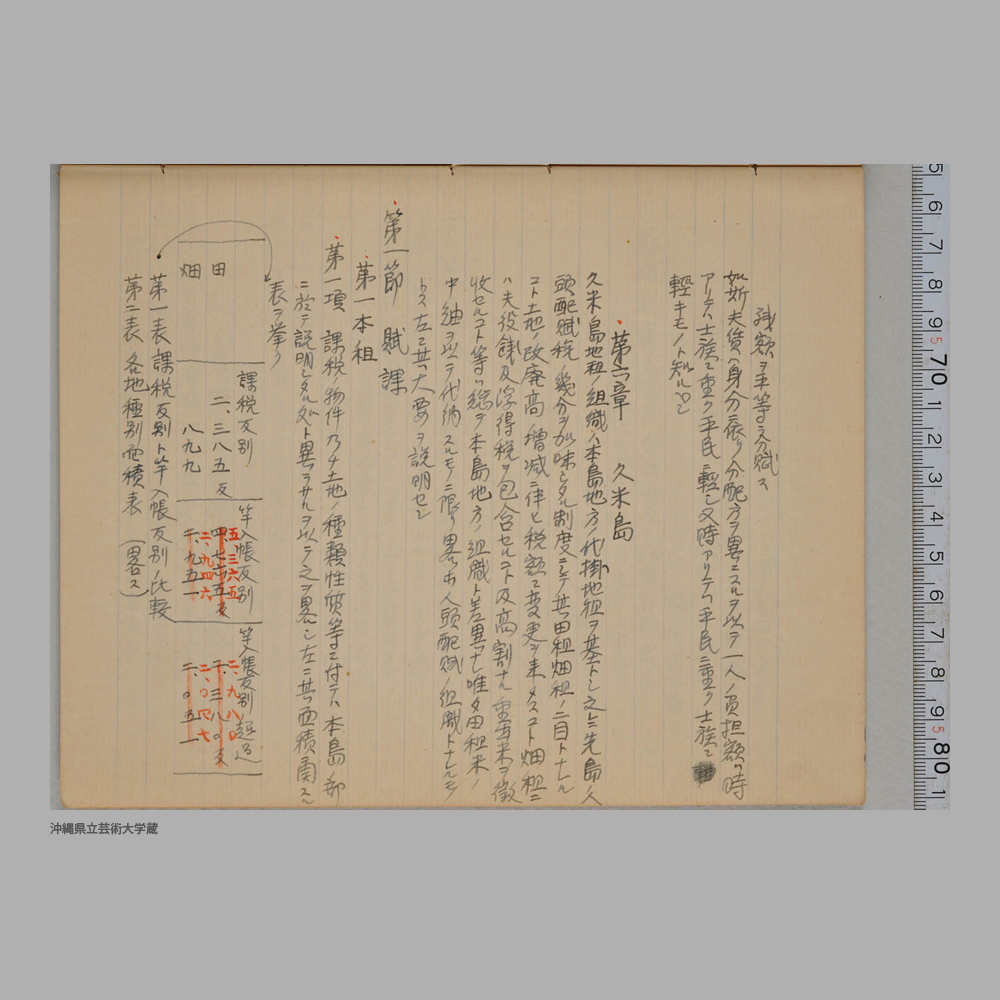 残額ヲ平等ニ分賦ス
如斯夫賃ハ身分ニ依リ分配方ヲ異ニスルヲ以テ一人ノ負担額ハ時
アリテハ士族ニ重ク平民ニ軽シ又時アリテハ平民ニ重ク士族ニ
軽キモノト知ルベシ
第六章 久米島
久米島地租ノ組織ハ本島地方ノ代掛地租ヲ基トシ之ニ先島ノ人
頭配賦税ノ幾分ヲ加味シタル制度ニシテ其田租畑租ノ二目トナレル
コト土地ノ改廃高ノ増減ニ伴ヒ税額ニ変更ヲ来タスコト畑租ニ
ハ夫役銭及浮得税ヲ包含セルコト及高割ナル重出米ヲ徴
収セルコト等ハ総テ本島地方ノ組織ト差異ナシ唯タ田租米ノ
中紬ヲ以テ代納スルモノニ限リ畧ホ人頭配賦ノ組織トナレルモノ
トス左ニ其大要ヲ説明セン
第一節 賦課
第一本租
第一項 課税ノ物件乃チ土地ノ種類性質等ニ付テハ本島ノ部
ニ於テ説明シタル処ト異ラサルヲ以テ之ヲ畧シ左ニ其面積ニ関スル
表ヲ挙ク
課税反別 竿入帳反別 竿入帳反別ノ超過
田 二、三八五反 五三六五 二、九八〇
畑 八九九 二、九四六 二、〇四七
二、九五一 二、〇五一
第一表 課税反別ト竿入帳反別ノ比較
第二表 各地種別面積表 (畧ス)
5 6 7 8 9 70 1 2 3 4 5 6 7 8 9 80 1
沖縄県立芸術大学蔵